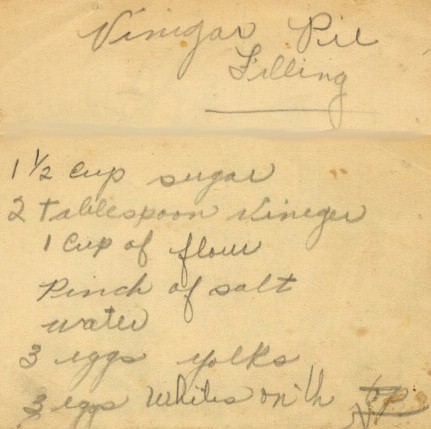 Vinegar Pie
Filling
1 1/2 cup sugar
2 tablespoon vineger
1 cup of flour
Pinch of salt
water
3 eggs yolks
3 eggs whites on th top